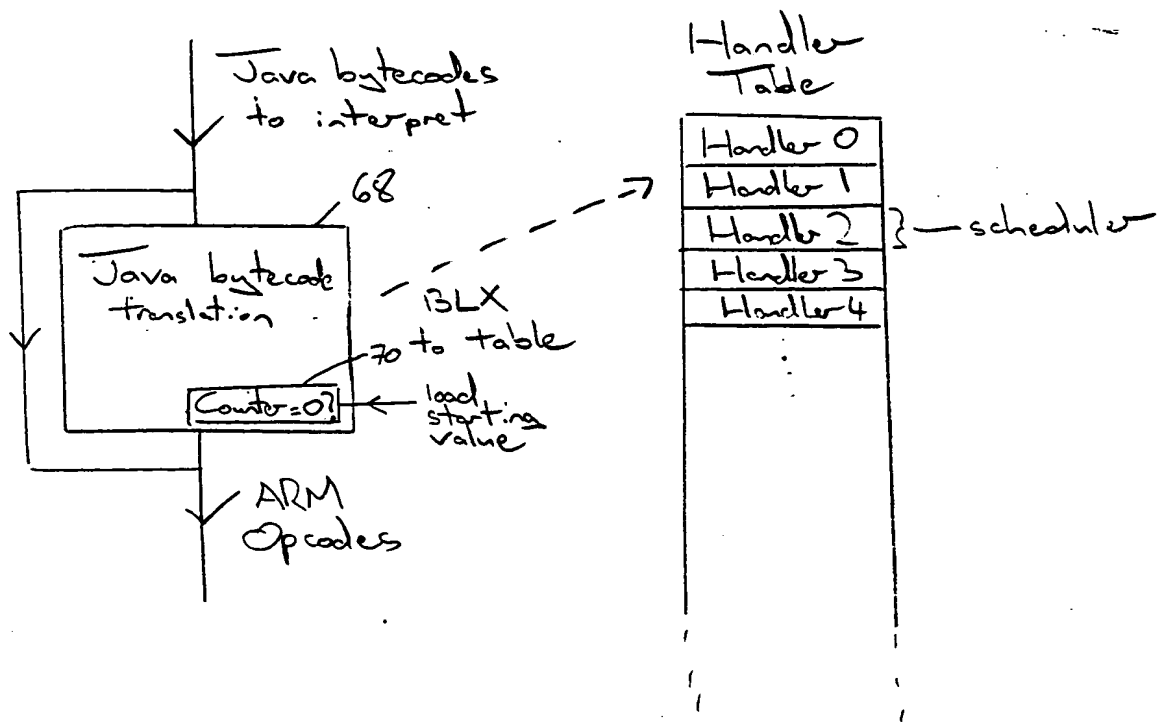 Java bytecodes
to interpret
68
Java bytecode
translation
70
Counter=0?
BLX
to table
load
starting
value
ARM
Opcodes
Handler
Table
Handler 0
Handler 1
Handler 2
Handler 3
Handler 4
scheduler